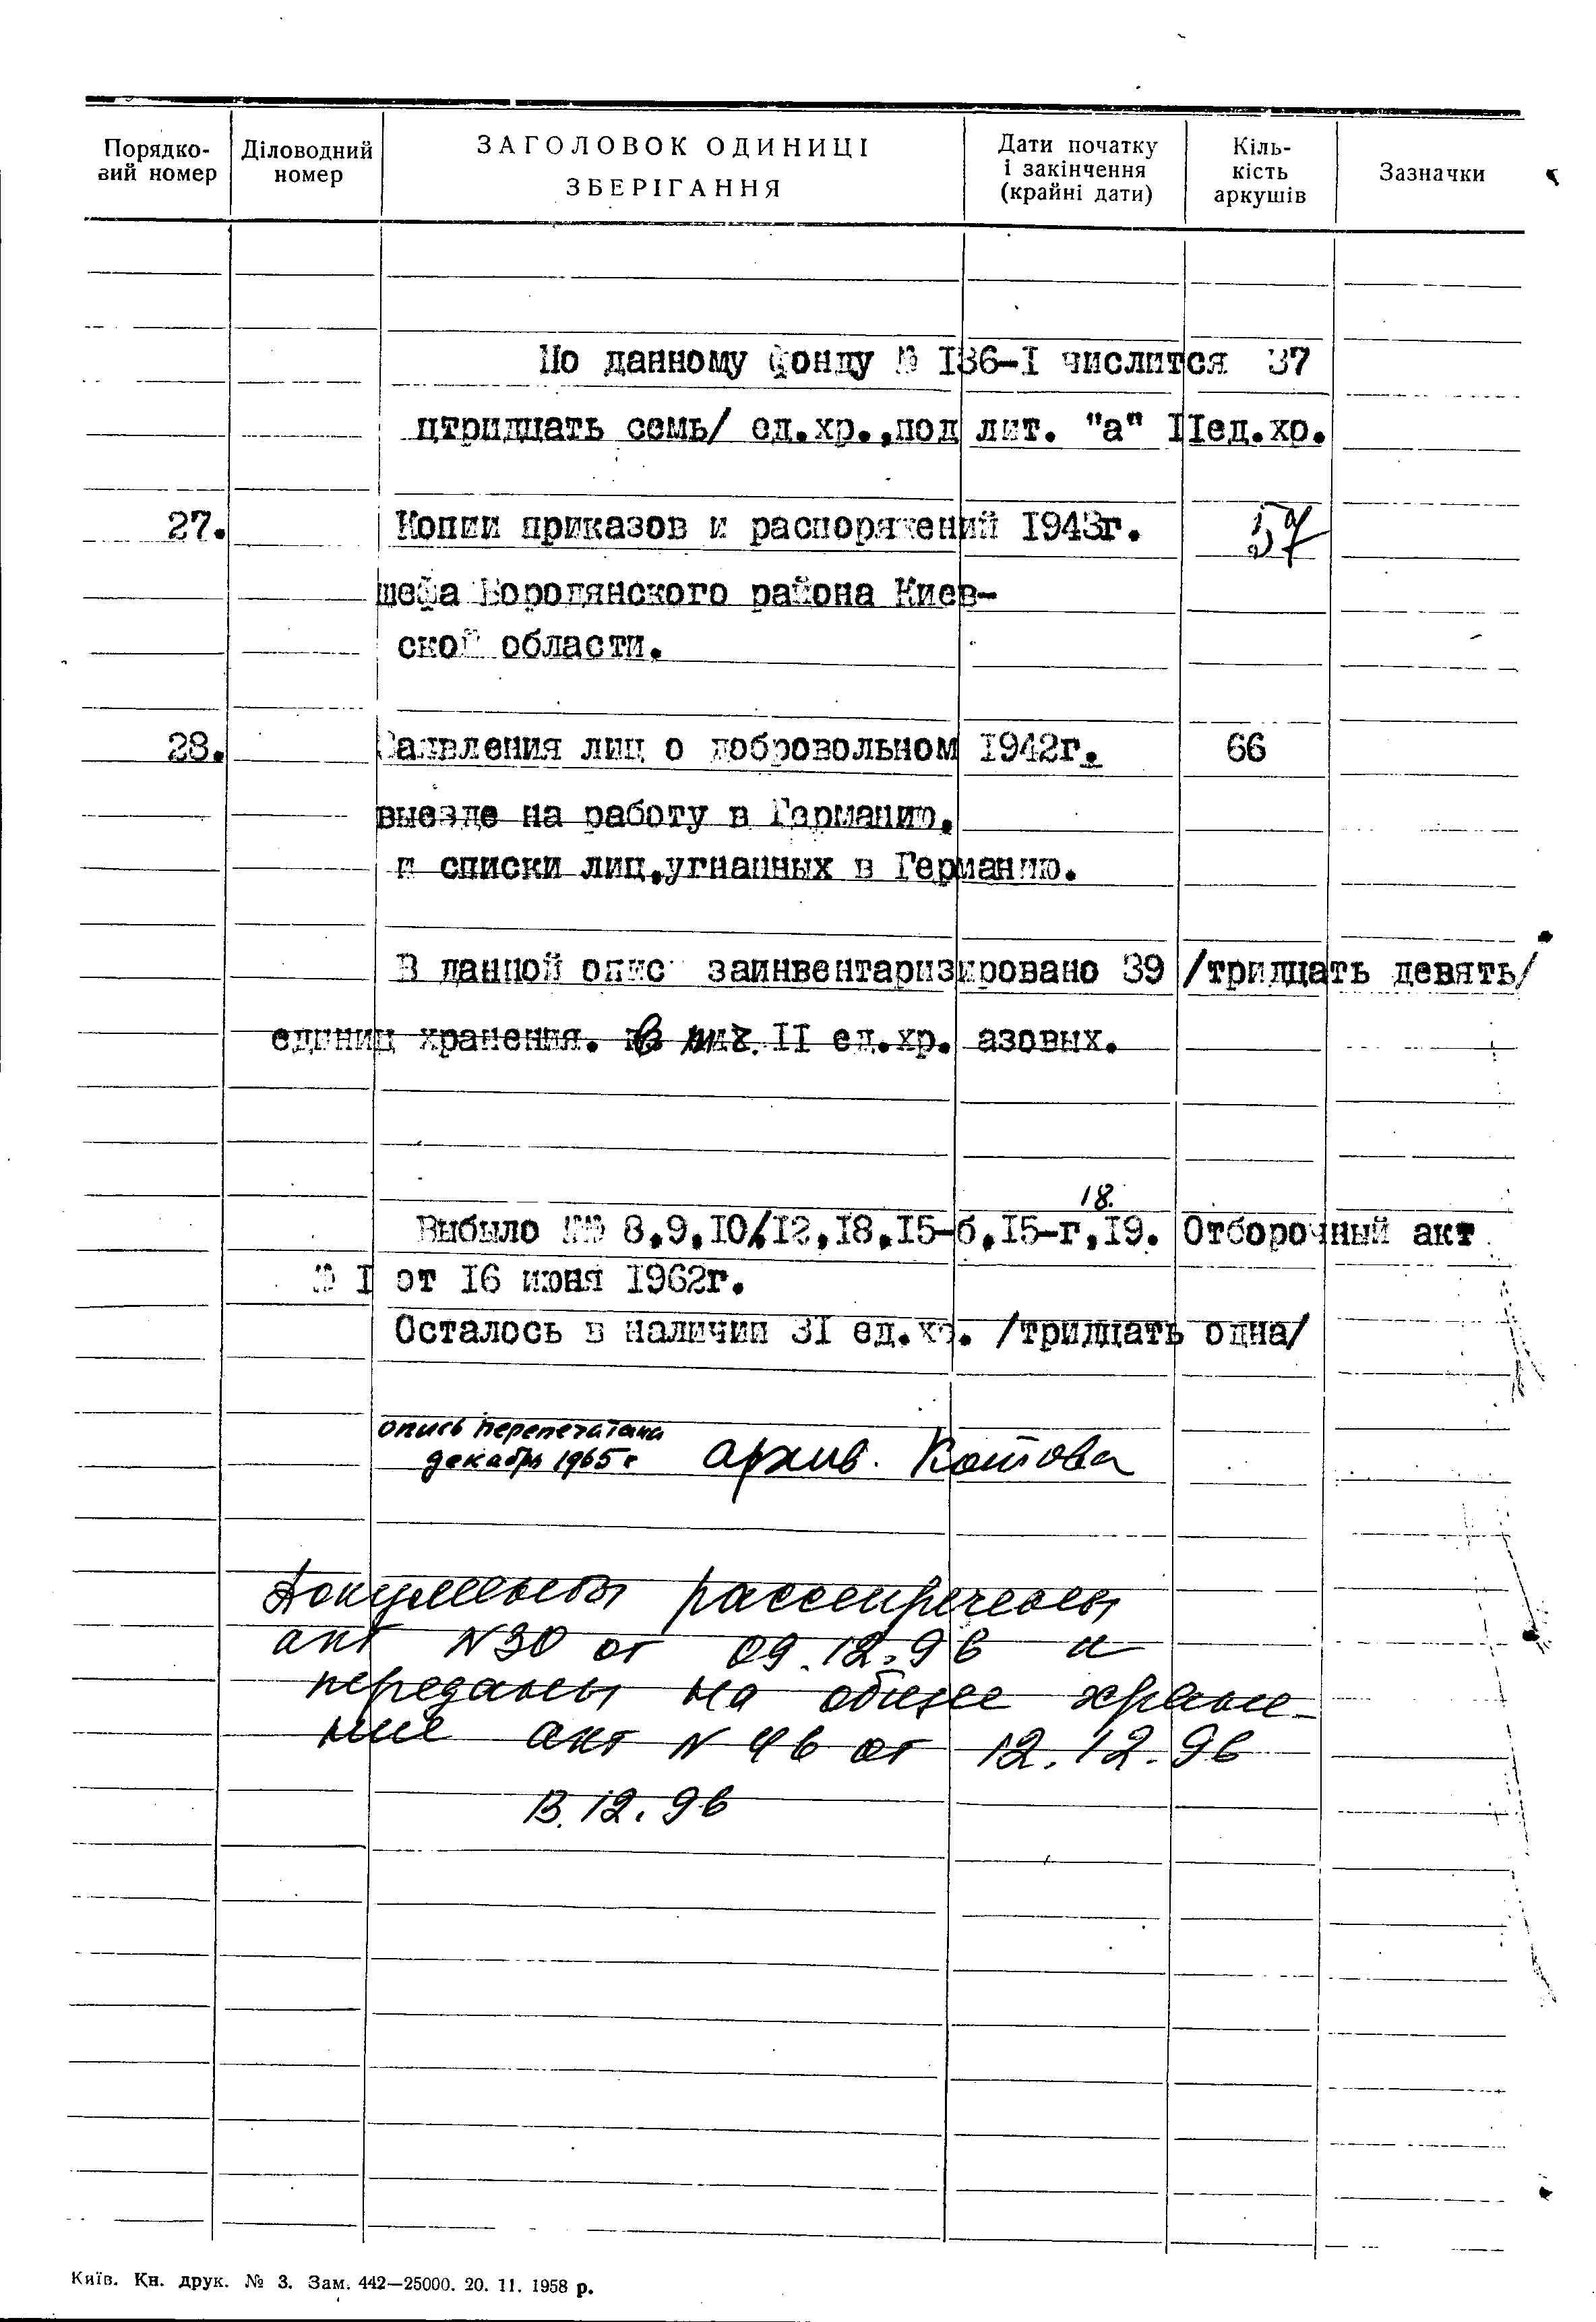 Порядко-
вий номер
Діловодний
номер
ЗАГОЛОВОК ОДИНИЦІ
ЗБЕРІГАННЯ
Дати початку
і закінчення
(крайні дати)
Кіль-
кість
аркушів
Зазначки
По данному фонду № 136-I числится 37
цтридцать семь/ ед.хр.,под лит. "а" IIед.хр.
27. Копии приказов и распоряжений 1943г. 57
шефа Бородянского района Киев-
ской области.
28. Заявления лиц о добровольном 1942г. 66
выезде на работу в Германию.
и списки лиц,угнанных в Германию.
В данной опис заинвентаризировано 39 /тридцать девять/
единиц хранения. В т.ч. II ед.хр. азовых.
18.
Выбыло №№ 8,9,10,12,18,15-б,15-г,19. Отборочный акт
№ I от 16 июня 1962г.
Осталось в наличии 3I ед.хр. /тридцать одна/
опись перепечатана
декабрь 1965 г
архив. Котова
Документы рассекречены
акт N 30 от 09.12.96 и
переданы на общее хране-
ние акт N 46 от 12.12.96
13.12.96
Київ. Кн. друк. № 3. Зам. 442—25000. 20. 11. 1958 р.